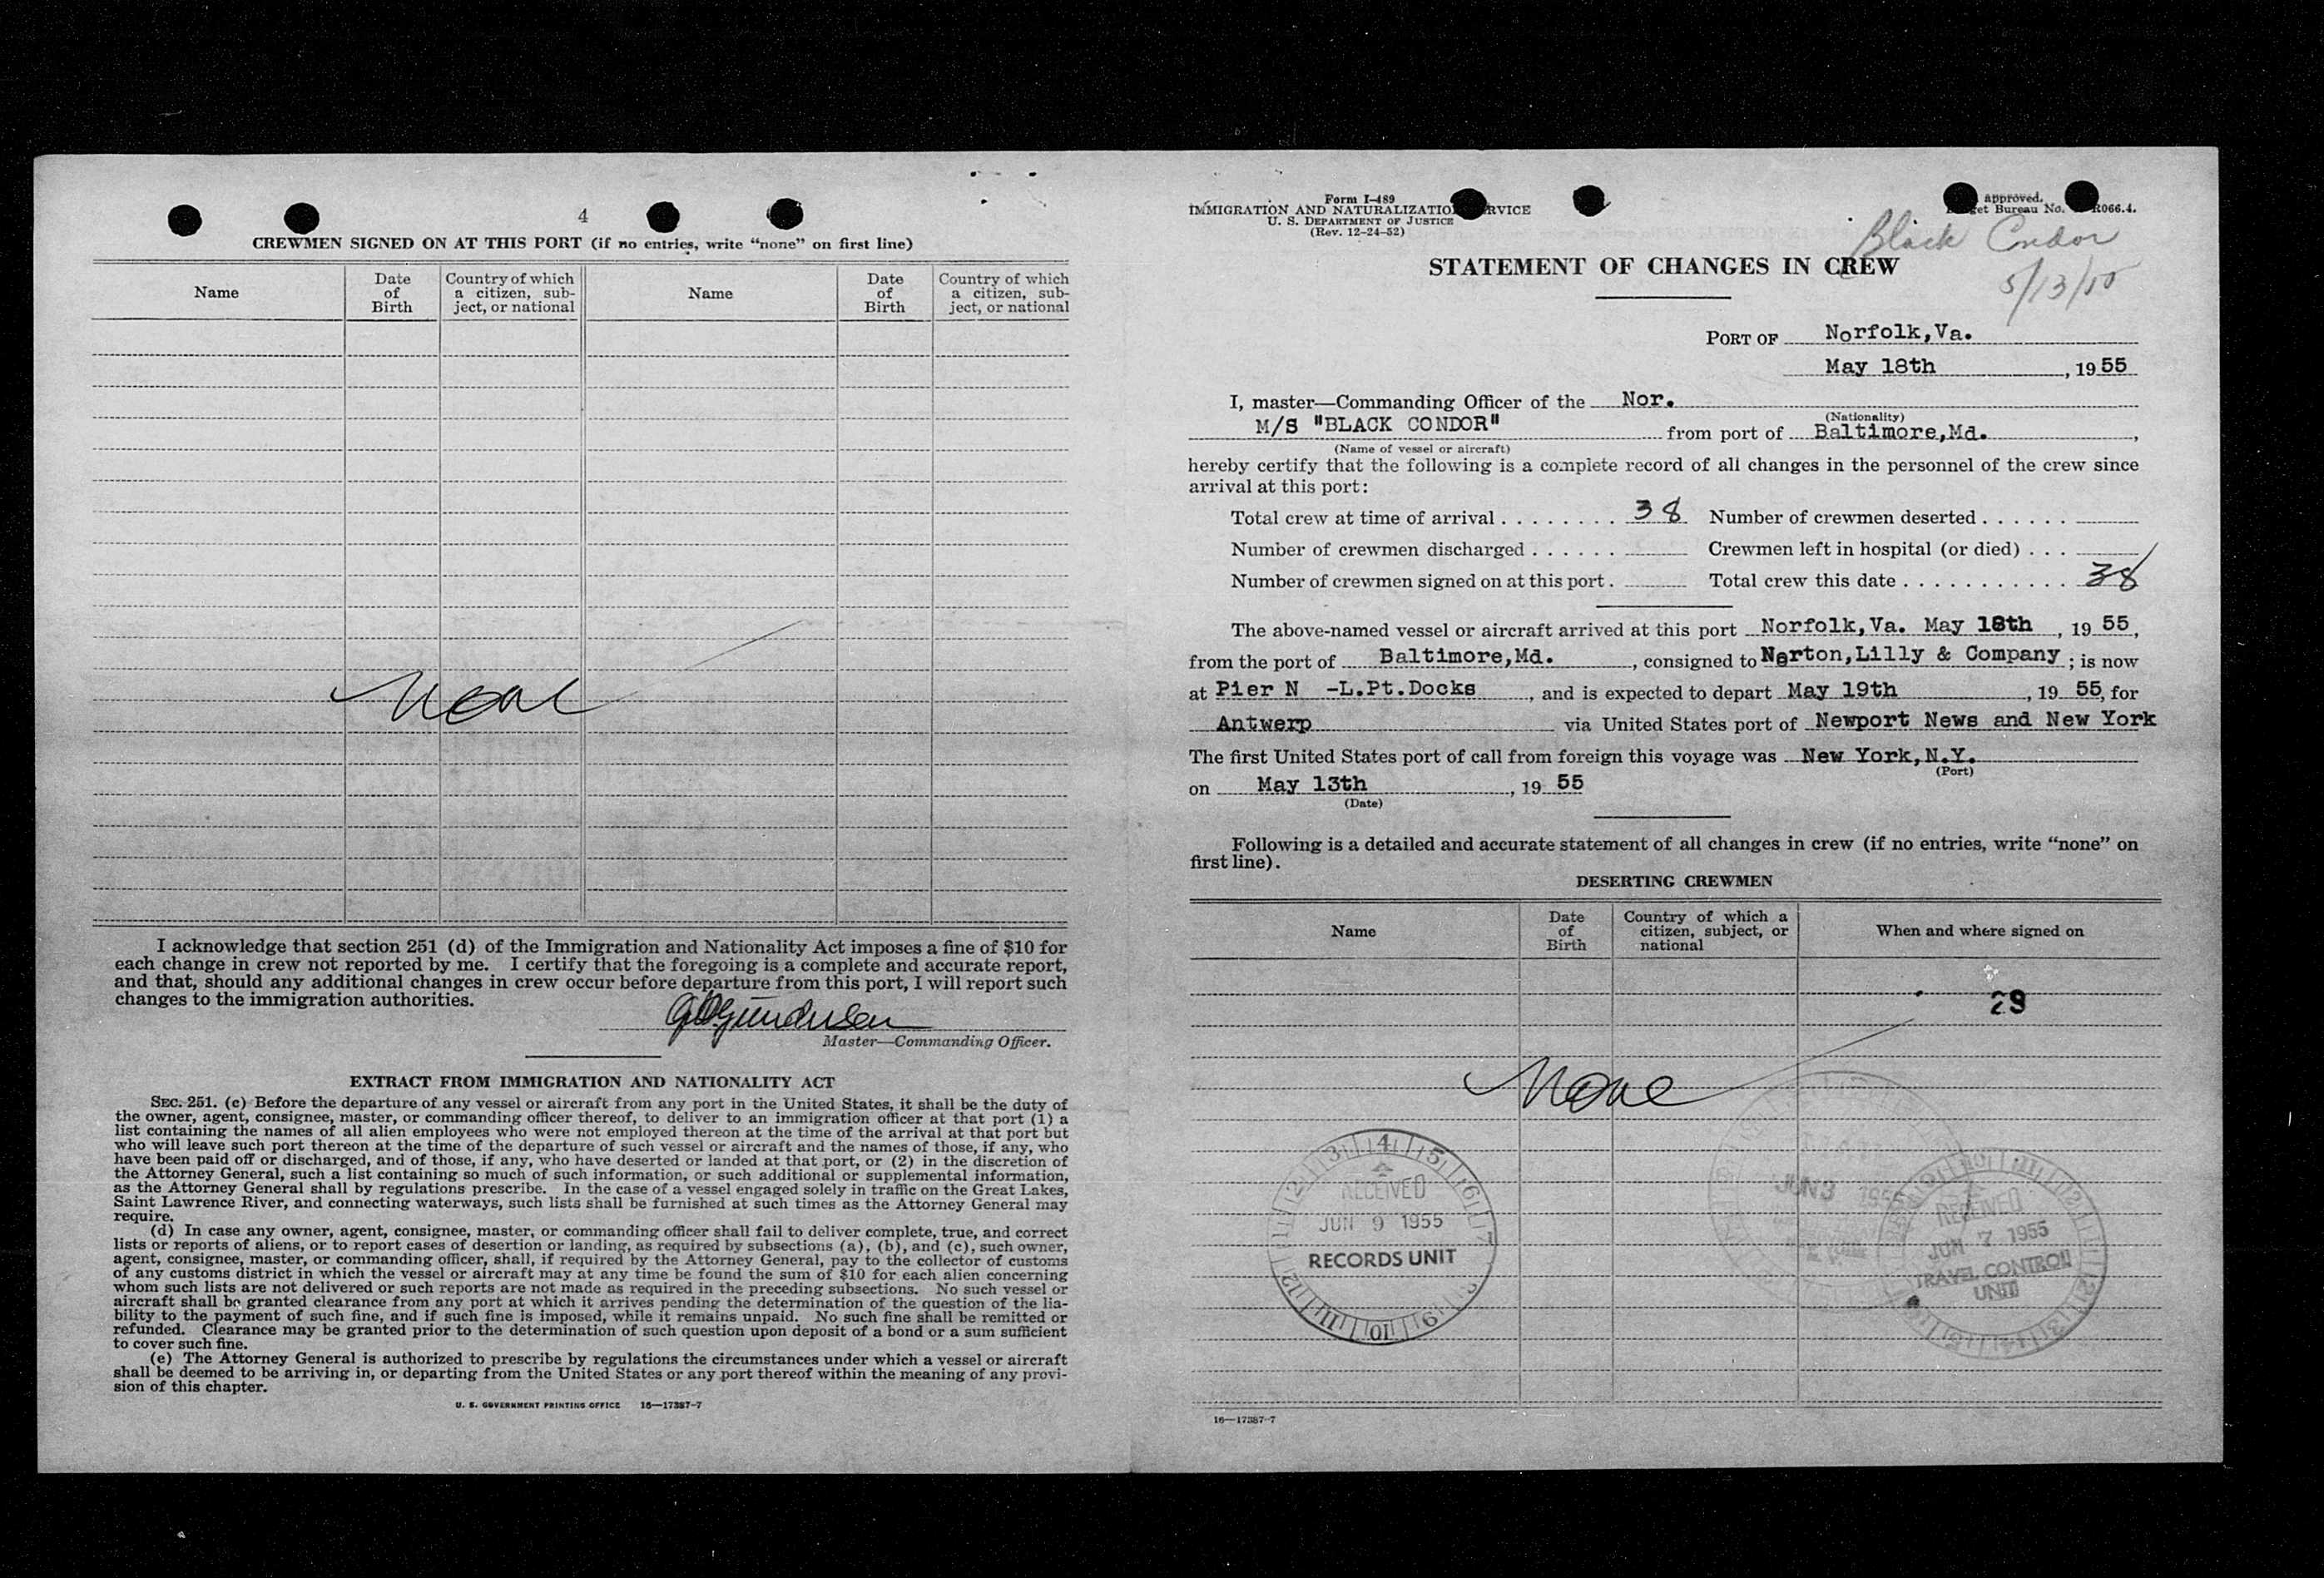 4
CREWMEN SIGNED ON AT THIS PORT (if no entries, write “none” on first line)
Name
Date of Birth
Country of which a citizen, subject, or national
Name
Date of Birth
Country of which a citizen, subject, or national
None
I acknowledge that section 251 (d) of the Immigration and Nationality Act imposes a fine of $10 for
each change in crew not reported by me. I certify that the foregoing is a complete and accurate report,
and that, should any additional changes in crew occur before departure from this port, I will report such
changes to the immigration authorities.
Gundersen
Master—Commanding Officer.
EXTRACT FROM IMMIGRATION AND NATIONALITY ACT
SEC. 251. (c) Before the departure of any vessel or aircraft from any port in the United States, it shall be the duty of
the owner, agent, consignee, master, or commanding officer thereof, to deliver to an immigration officer at that port (1) a
list containing the names of all alien employees who were not employed thereon at the time of the arrival at that port but
who will leave such port thereon at the time of the departure of such vessel or aircraft and the names of those, if any, who
have been paid off or discharged, and of those, if any, who have deserted or landed at that port, or (2) in the discretion of
the Attorney General, such a list containing so much of such information, or such additional or supplemental information,
as the Attorney General shall by regulations prescribe. In the case of a vessel engaged solely in traffic on the Great Lakes,
Saint Lawrence River, and connecting waterways, such lists shall be furnished at such times as the Attorney General may
require.
(d) In case any owner, agent, consignee, master, or commanding officer shall fail to deliver complete, true, and correct
lists or reports of aliens, or to report cases of desertion or landing, as required by subsections (a), (b), and (c), such owner,
agent, consignee, master, or commanding officer, shall, if required by the Attorney General, pay to the collector of customs
of any customs district in which the vessel or aircraft may at any time be found the sum of $10 for each alien concerning
whom such lists are not delivered or such reports are not made as required in the preceding subsections. No such vessel or
aircraft shall be granted clearance from any port at which it arrives pending the determination of the question of the lia-
bility to the payment of such fine, and if such fine is imposed, while it remains unpaid. No such fine shall be remitted or
refunded. Clearance may be granted prior to the determination of such question upon deposit of a bond or a sum sufficient
to cover such fine.
(e) The Attorney General is authorized to prescribe by regulations the circumstances under which a vessel or aircraft
shall be deemed to be arriving in, or departing from the United States or any port thereof within the meaning of any provi-
sion of this chapter.
U. S. GOVERNMENT PRINTING OFFICE 16—17387-7
Form I-489
IMMIGRATION AND NATURALIZATIO RVICE
U. S. DEPARTMENT OF JUSTICE
(Rev. 12-24-52)
approved.
et Bureau No. R066.4.
Black Condor
5/13/55
STATEMENT OF CHANGES IN CREW
PORT OF Norfolk,Va.
May 18th, 1955
I, master—Commanding Officer of the Nor.
(Nationality)
M/S "BLACK CONDOR" from port of Baltimore,Md.,
(Name of vessel or aircraft)
hereby certify that the following is a complete record of all changes in the personnel of the crew since
arrival at this port:
Total crew at time of arrival . . . . . . . . 38 Number of crewmen deserted . . . . . .
Number of crewmen discharged . . . . . . Crewmen left in hospital (or died) . . .
Number of crewmen signed on at this port . Total crew this date . . . . . . . . . . . 38
The above-named vessel or aircraft arrived at this port Norfolk,Va. May 18th, 1955,
from the port of Baltimore,Md., consigned to Norton,Lilly & Company; is now
at Pier N -L.Pt.Docks, and is expected to depart May 19th, 1955, for
Antwerp via United States port of Newport News and New York
The first United States port of call from foreign this voyage was New York,N.Y.
(Port)
on May 13th, 1955
(Date)
Following is a detailed and accurate statement of all changes in crew (if no entries, write “none” on
first line).
DESERTING CREWMEN
Name
Date of Birth
Country of which a citizen, subject, or national
When and where signed on
29
None
RECEIVED
JUN 9 1955
RECORDS UNIT
JUN 3 1955
RECEIVED
JUN 7 1955
TRAVEL CONTROL
UNIT
16—17387-7